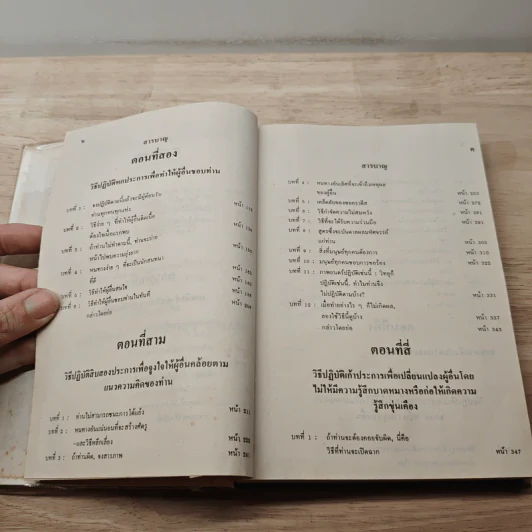 ๒
สารบาญ
ตอนที่สอง
วิธีปฏิบัติหกประการเพื่อทำให้ผู้อื่นชอบท่าน
บทที่ 1 : จงปฏิบัติตามนี้แล้วจะมีผู้ต้อนรับ
ท่านทุกหนทุกแห่ง
บทที่ 2 : วิธีง่าย ๆ ที่ทำให้ผู้อื่นติดเนื้อ
ต้องใจเมื่อแรกพบ
บทที่ 3 : ถ้าท่านไม่ทำตามนี้, ท่านจะบ่าย
หน้าไปพบความยุ่งยาก
บทที่ 4 : หนทางง่าย ๆ ที่จะเป็นนักสนทนา
ที่ดี
บทที่ 5 : วิธีทำให้ผู้อื่นสนใจ
บทที่ 6 : วิธีทำให้ผู้อื่นชอบท่านในทันที
กล่าวโดยย่อ
ตอนที่สาม
วิธีปฏิบัติสิบสองประการเพื่อจูงใจให้ผู้อื่นคล้อยตาม
แนวความคิดของท่าน
บทที่ 1 : ท่านไม่สามารถชนะการโต้แย้ง หน้า 211
บทที่ 2 : หนทางอันแน่นอนที่จะสร้างศัตรู
-และวิธีหลีกเลี่ยง หน้า
บทที่ 3 : ถ้าท่านผิด, จงสารภาพ หน้า
๓
สารบาญ
บทที่ 4 : หนทางอันเลิศที่จะเข้าถึงเหตุผล
ของผู้อื่น หน้า
บทที่ 5 : เคล็ดลับของซอกราตีส หน้า
บทที่ 6 : วิธีกำจัดความไม่สมหวัง หน้า
บทที่ 7 : วิธีที่จะได้รับความร่วมมือ หน้า
บทที่ 8 : สูตรซึ่งจะบันดาลผลมหัศจรรย์
แก่ท่าน หน้า
บทที่ 9 : สิ่งที่มนุษย์ทุกคนต้องการ หน้า 310
บทที่ 10 : มนุษย์ทุกคนชอบการขอร้อง หน้า 322
บทที่ 11 : ภาพยนตร์ปฏิบัติเช่นนี้ : วิทยุก็
ปฏิบัติเช่นนี้. ทำไมท่านจึง
ไม่ปฏิบัติตามบ้าง? หน้า 331
บทที่ 12 : เมื่อทำอย่างไร ๆ ก็ไม่เกิดผล,
ลองใช้วิธีนี้ดูบ้าง หน้า 337
กล่าวโดยย่อ หน้า 343
ตอนที่สี่
วิธีปฏิบัติเก้าประการเพื่อเปลี่ยนแปลงผู้อื่นโดย
ไม่ให้มีความรู้สึกบาดหมางหรือก่อให้เกิดความ
รู้สึกขุ่นเคือง
บทที่ 1 : ถ้าท่านจะต้องคอยจับผิด, นี่คือ
วิธีที่ท่านจะเปิดฉาก หน้า 347